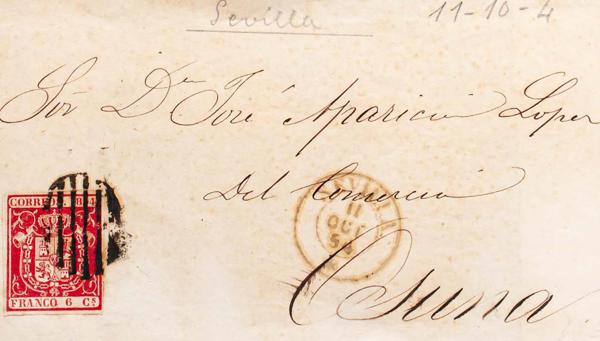 Sevilla 11-10-4
Sor Dn José Aparicio Lopez
Del Comercio
Osuna
SEVILLA
11
OCT
54
CORREOS 1854
FRANCO 6 Cs